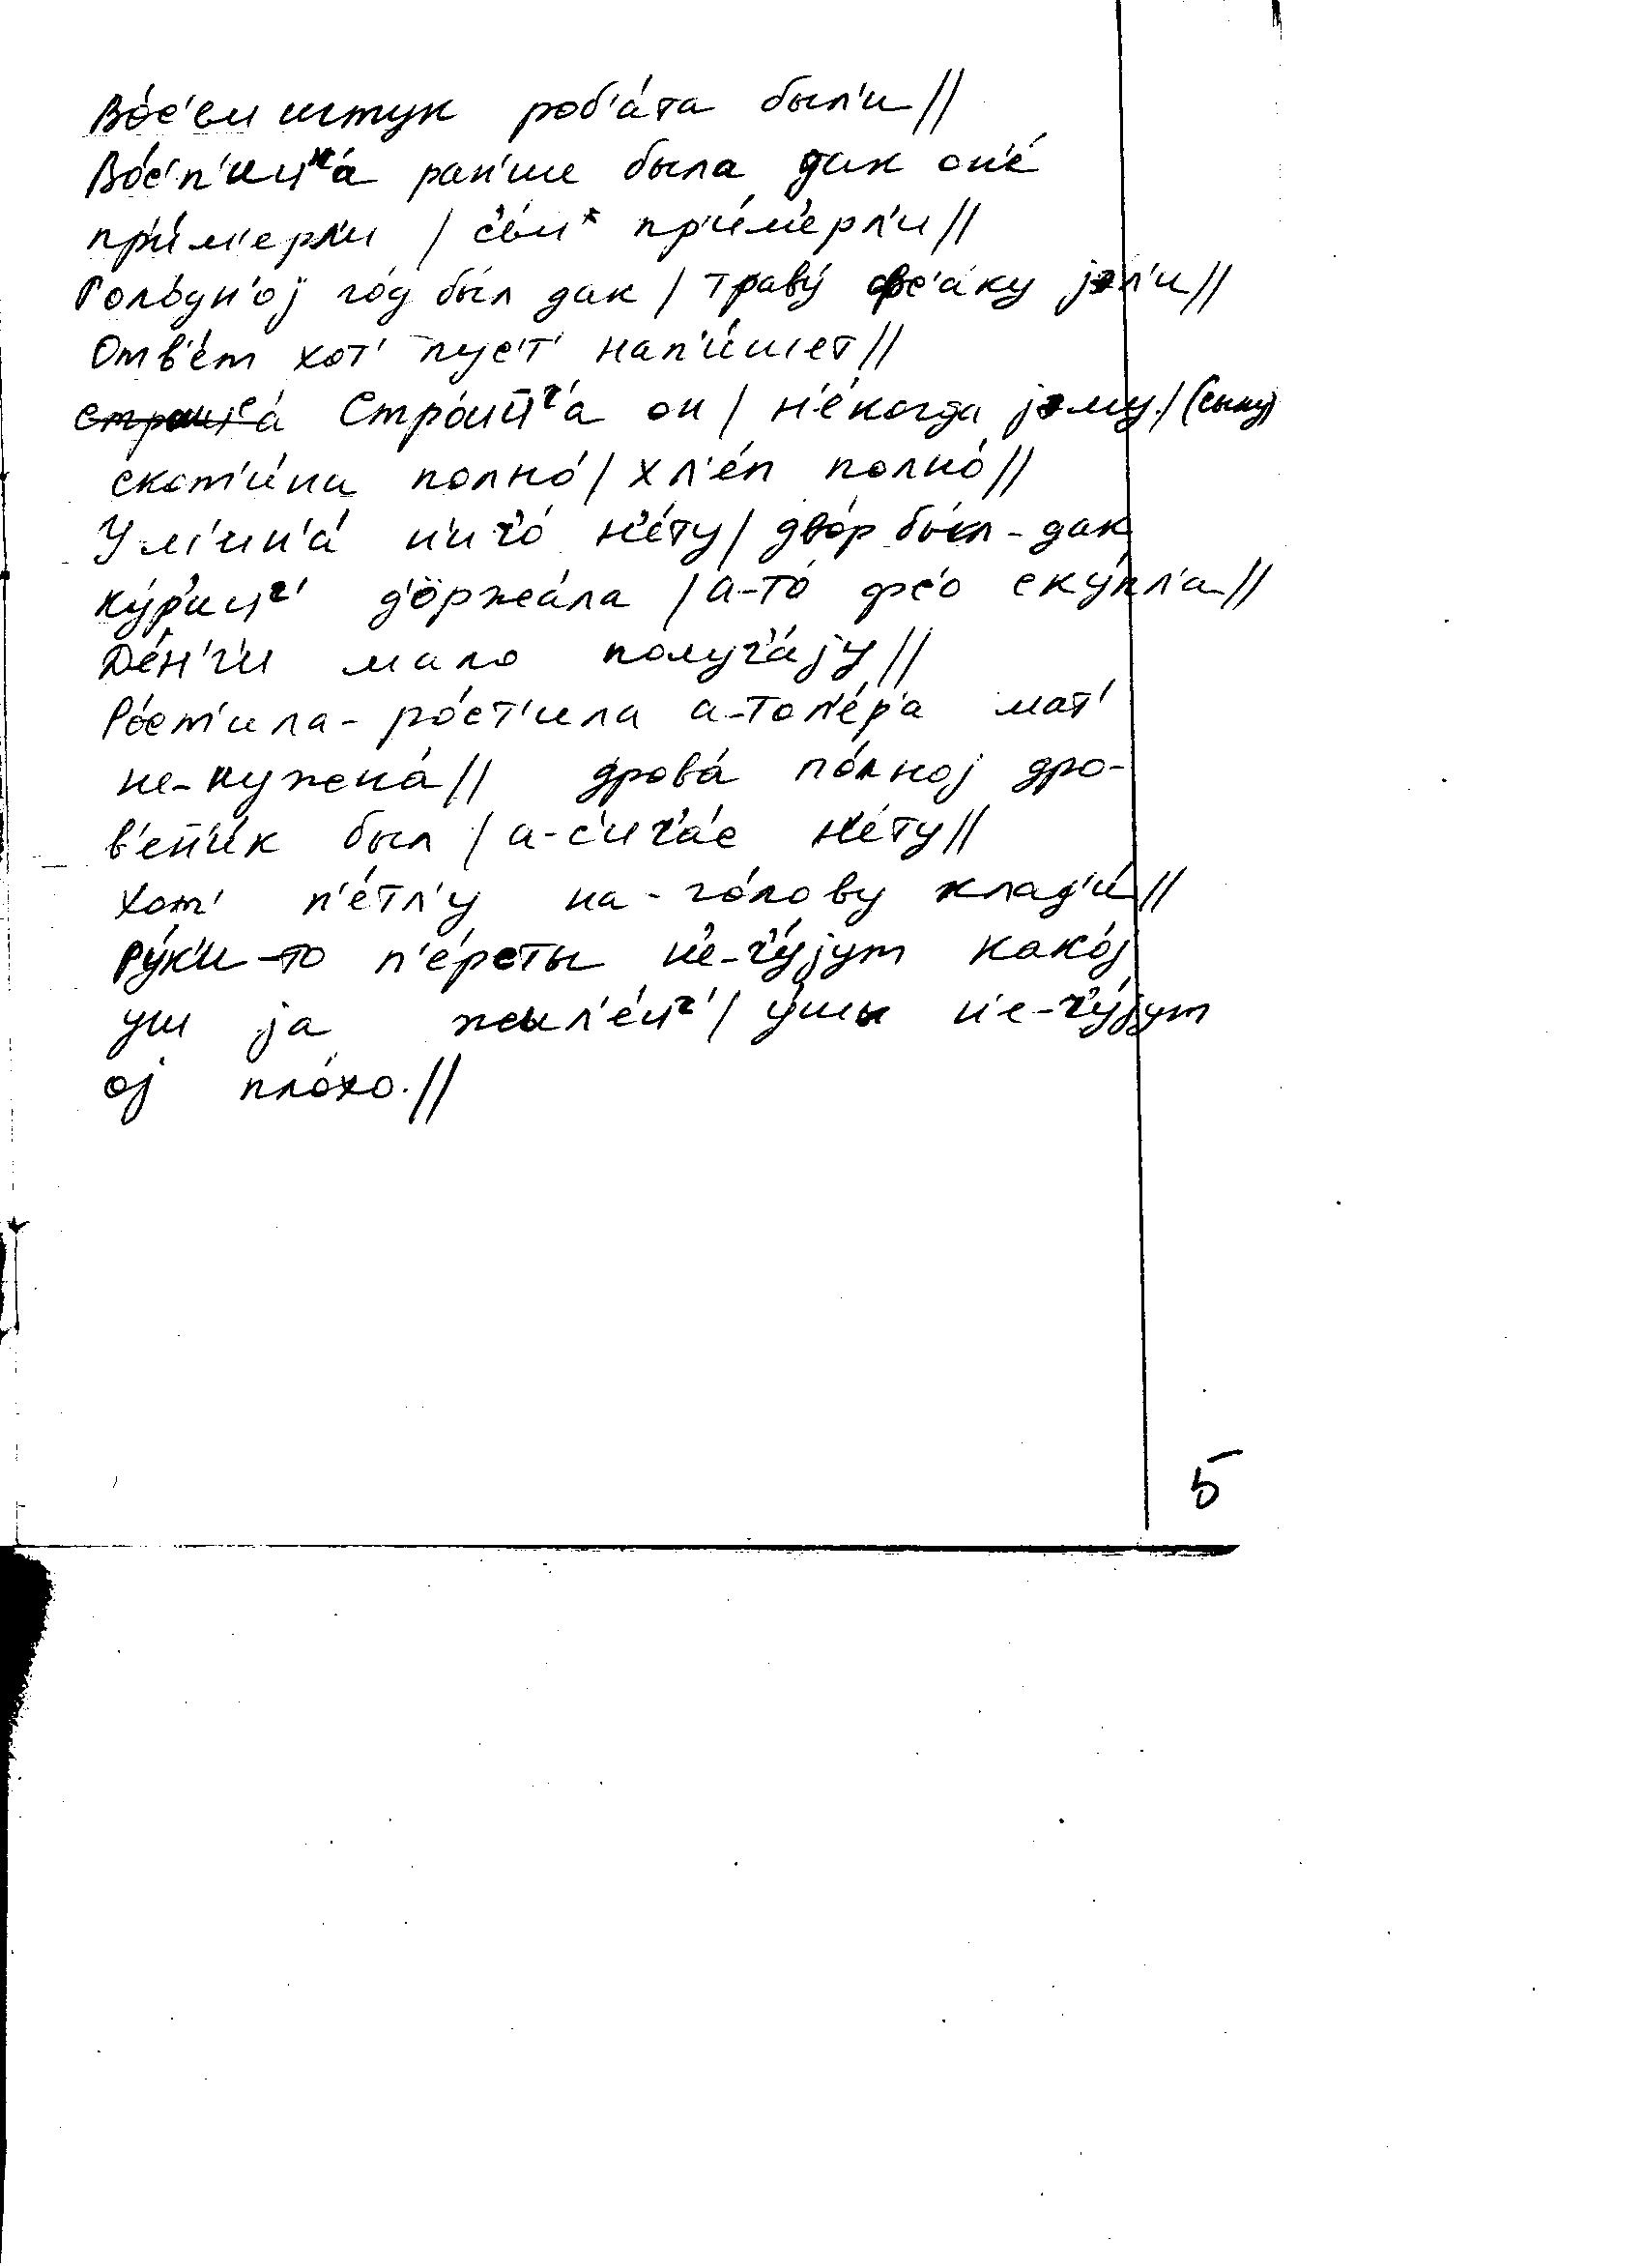 Во́с'ем штук роб'а́та был'и //
Во́с'п'иц^ч'а ран'ше была дак он'е́
пр'и́м'ерл'и / с'ем* пр'и́м'ерл'и //
Голо́дн'оj го́д бы́л дак / траву́ фс'а́ку jэл'и //
Отв'е́т хот' пус'т' нап'и́шет //
Стро́иц^ч'а он / н'е́когда jэму / (сыну)
скот'и́на полно́ / хл'е́п полно́ //
У м'ин'а́ н'ич'о́ н'е́ту / дво́р бы́л - дак
ку́р'иц^ч' д'оржа́ла / а-то́ фс'о ску́пл'а //
Де́н'г'и мало получ'а́jу //
Ро́ст'ила - ро́ст'ила а-топ'е́р'а мат'
не-нужена́ // дрова́ по́лноj дро-
в'ен'и́к был / а-с'ич'а́с н'е́ту //
Хот' п'е́тл'у на-го́лову клад'и́ //
Ру́к'и-то п'е́рсты н'е-ч'у́jут како́j
уш jа жыл'е́ц^ч' / у́шы н'е-ч'у́jут
оj пло́хо. //
5